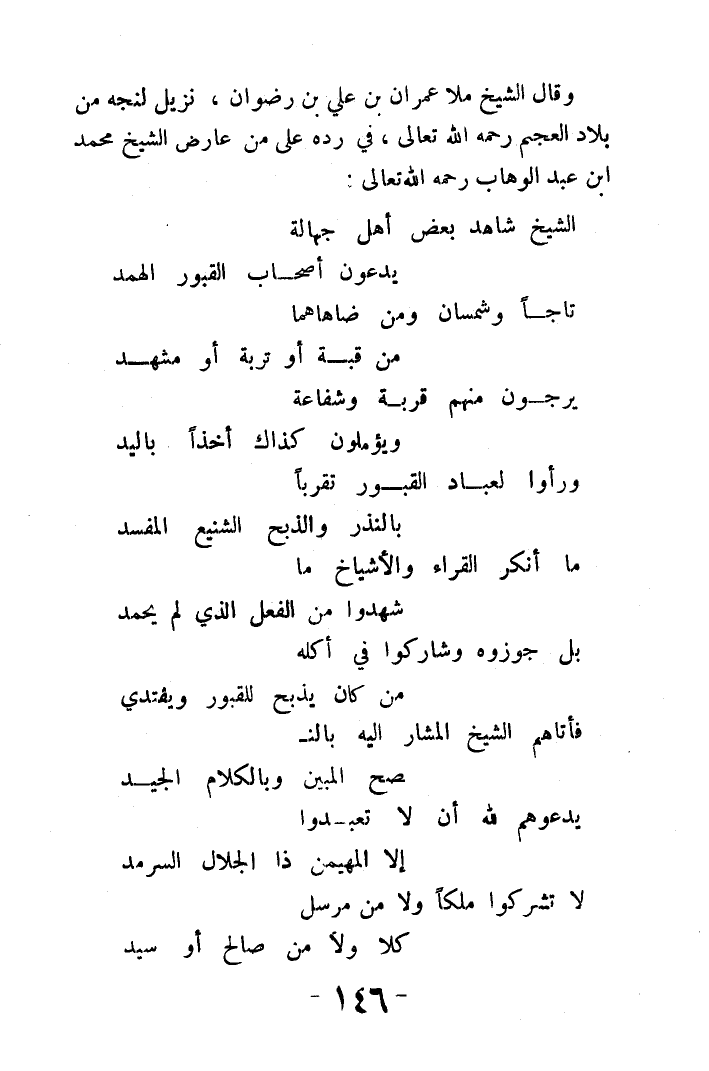 وقال الشيخ ملا عمران بن علي بن رضوان ، نزيل لنجه من
بلاد العجم رحمه الله تعالى ، في رده على من عارض الشيخ محمد
ابن عبد الوهاب رحمه الله تعالى :
الشيخ شاهد بعض أهل جهالة
يدعون أصحـــاب القبور الهمد
تاجــاً وشمسان ومن ضاهاهما
من قبــة أو تربة أو مشهــد
يرجــون منهم قربــة وشفاعة
ويؤملون كذاك أخذاً باليد
ورأوا لعبــاد القبــور تقرباً
بالنذر والذبح الشنيع المفسد
ما أنكر القراء والأشياخ ما
شهدوا من الفعل الذي لم يحمد
بل جوزوه وشاركوا في أكله
من كان يذبح للقبور ويفتدي
فأتاهم الشيخ المشار اليه بالنـ
صح المبين وبالكلام الجيــد
يدعوهم لله أن لا تعبــدوا
إلا المهيمن ذا الجلال السرمد
لا تشركوا ملكاً ولا من مرسل
كلا ولا من صالح أو سيد
- ١٤٦ -